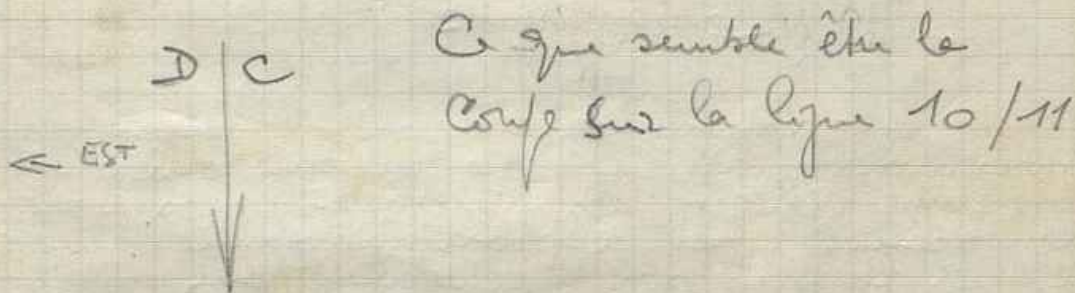 D | C
Ce que semble être la
coupe sur la ligne 10/11
← EST